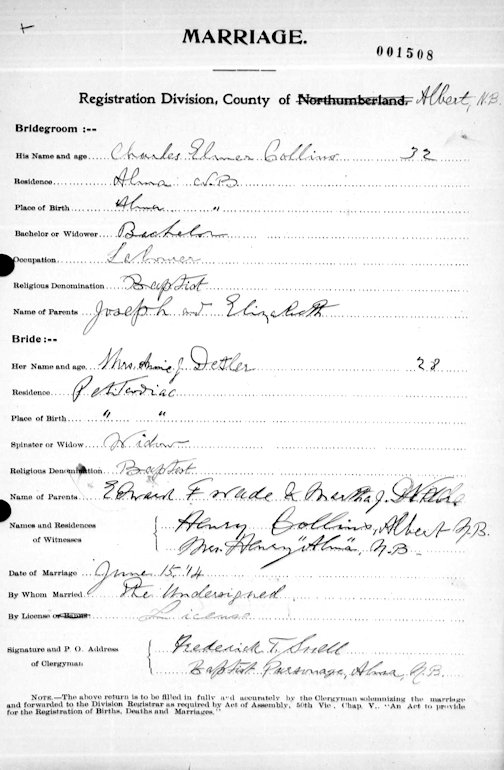 MARRIAGE.
001508
Registration Division, County of Northumberland. Albert, N.B.
Bridegroom :--
His Name and age Charles Elmer Collins 32
Residence Alma N.B
Place of Birth Alma "
Bachelor or Widower Bachelor
Occupation Labourer
Religious Denomination Baptist
Name of Parents Joseph and Elizabeth
Bride :--
Her Name and age Mrs. Annie J. 28
Residence Petitcodiac
Place of Birth " "
Spinster or Widow Widow
Religious Denomination Baptist
Name of Parents Edward F Wade & Martha J.
Names and Residences Henry Collins, Albert N.B.
of Witnesses Mrs. Henry " Alma, N.B.
Date of Marriage June 15. '14
By Whom Married The Undersigned
By License or Banns License
Signature and P. O. Address Frederick T. Snell
of Clergyman Baptist Parsonage, Alma, N.B.
NOTE.—The above return is to be filled in fully and accurately by the Clergyman solemnizing the marriage
and forwarded to the Division Registrar as required by Act of Assembly, 50th Vic, Chap. V., "An Act to provide
for the Registration of Births, Deaths and Marriages."